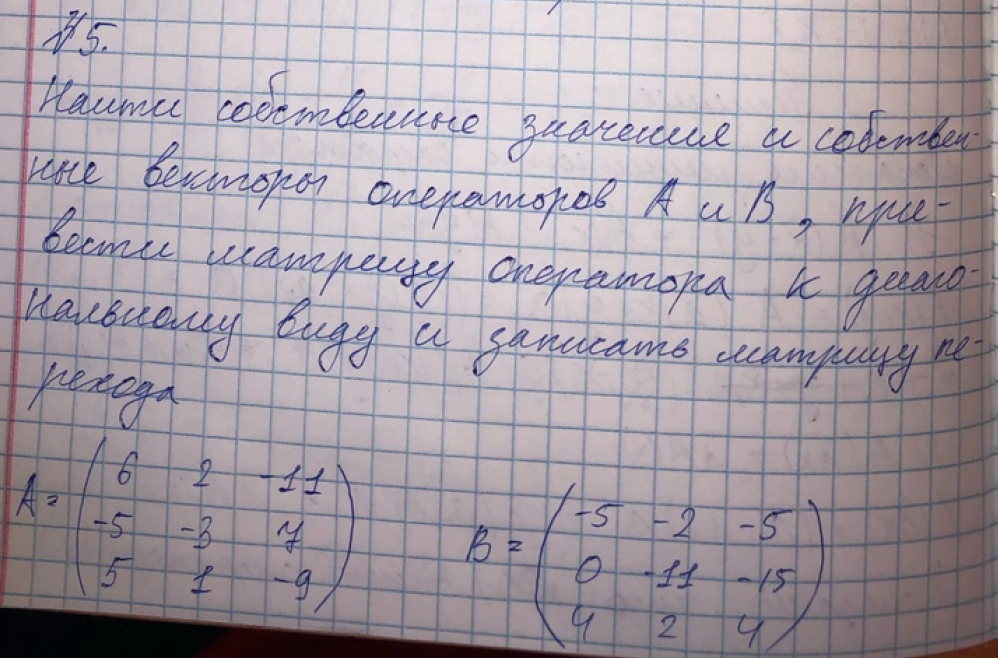 №5.
Найти собственные значения и собствен-
ные векторы операторов A и B, при-
вести матрицу оператора к диаго-
нальному виду и записать матрицу пе-
рехода
A = ( 6 2 -11
-5 -3 7
5 1 -9 )
B = ( -5 -2 -5
0 -11 -15
4 2 4 )